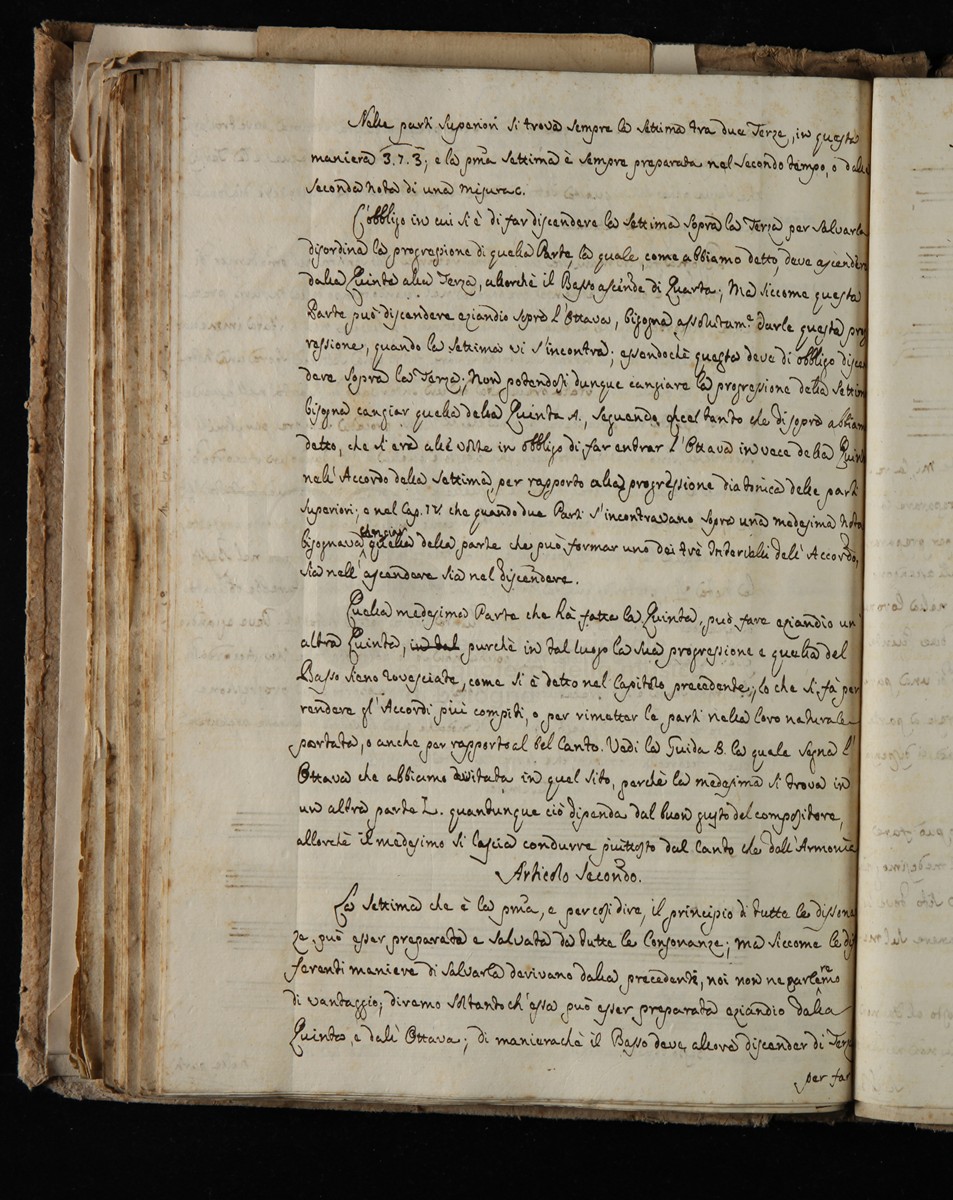 Nelle parti Superiori si trova sempre la Settima tra due Terze, in questa
maniera 3.7.3; e la pma Settima è sempre preparata nel secondo tempo, o dalla
seconda nota di una misura.
L'obbligo in cui si è di far discendere la Settima sopra la Terza per salvarla
disordina la progressione di quella Parte la quale, come abbiamo detto, deve ascender
dalla Quinta alla Terza, allorchè il Basso ascende di Quarta; Ma siccome questa
Parte può discendere eziandio sopra l'Ottava, bisogna assolutame. darle questa pro
gressione, quando la Settima vi s'incontra; essendochè questa deve di obbligo discen
dere sopra la Terza; Non potendosi dunque cangiare la progressione della Settim
bisogna cangiar quella della Quinta A, seguendo quel tanto che di sopra abbiam
detto, che si era alle volte in obbligo di far entrar l'Ottava in vece della Quint
nell'Accordo della Settima, per rapporto alla progressione diatonica delle parti
Superiori; e nel Cap. IV che quando due Parti s'incontravano sopra una medesima nota
bisognava cangiar quella della parte che può formar uno dei trè Intervalli dell'Accordo,
sia nell'ascendere sia nel discendere.
Quella medesima Parte che hà fatto la Quinta, può fare eziandio un
altra Quinta, in tal purchè in tal luogo la sua progressione e quella del
Basso sieno rovesciate, come si è detto nel Capitolo precedente; lo che si fà per
rendere gl'Accordi più compiti, o per rimetter le parti nella loro naturale
portata, o anche per rapporto al bel Canto. Vedi la Guida B. la quale segna l'
Ottava che abbiamo evitata in quel sito, perchè la medesima si trova in
un altra parte L. quantunque ciò dipenda dal buon gusto del compositore,
allorchè il medesimo si lascia condurre piuttosto dal Canto che dall'Armonia
Articolo Secondo.
La Settima che è la pma, e per così dire, il principio di tutte le disson
ze, può esser preparata e salvata da tutte le Consonanze; ma siccome le dif
ferenti maniere di salvarla derivano dalla precedenti, noi non ne parleremo
di vantaggio; diremo soltanto ch'essa può esser preparata eziandio dalla
Quinta, e dall'Ottava; di manierachè il Basso deve allora discender di Terz
per far